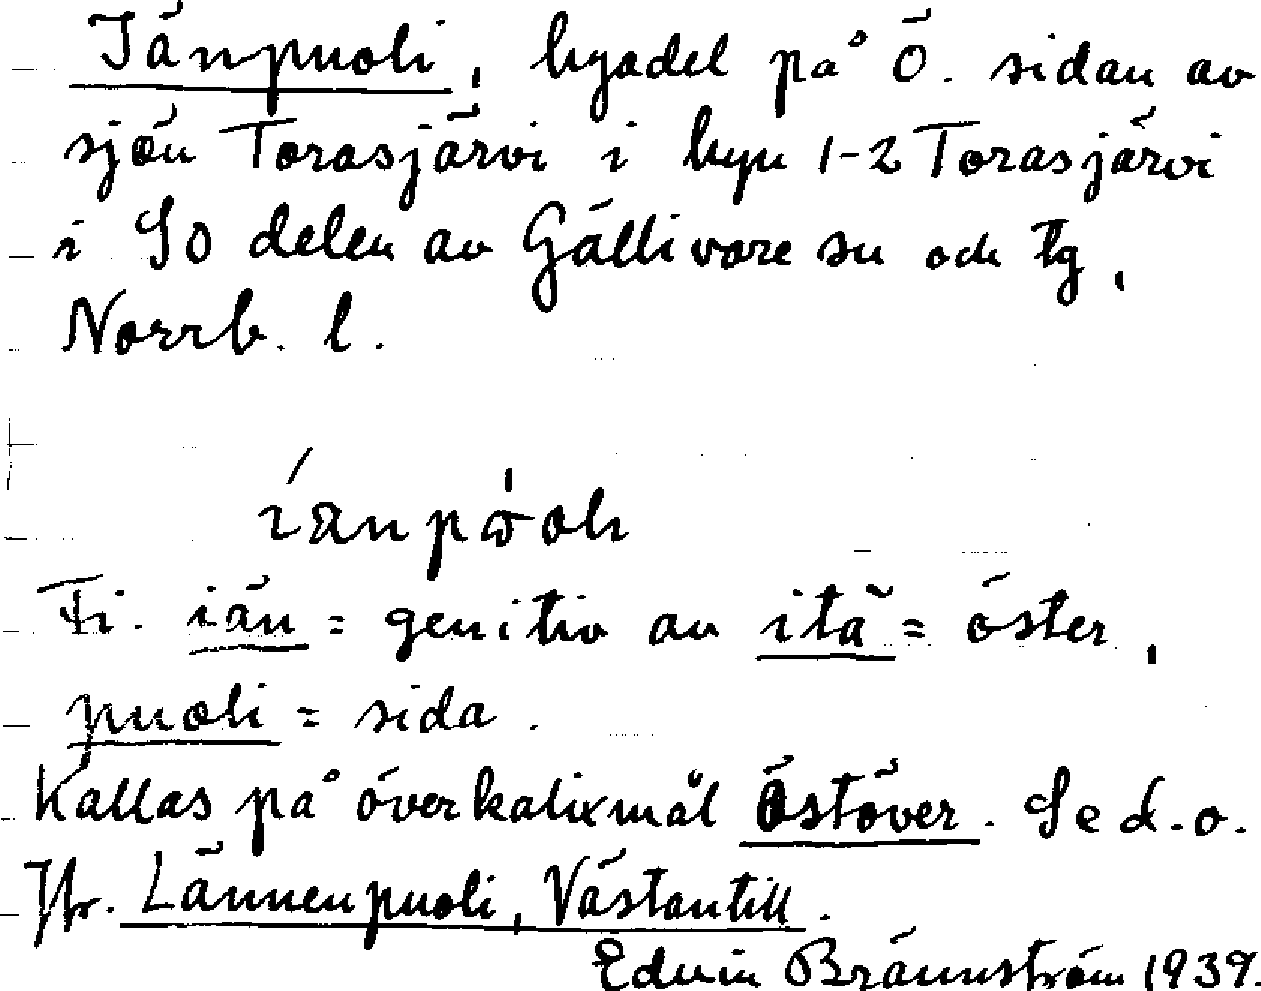 Iänpuoli, byadel på Ö. sidan av
sjön Torasjärvi i byn 1-2 Torasjärvi
i SO delen av Gällivare sn och tg,
Norrb. l.
Fi. iän = genitiv av itä = öster,
puoli = sida.
Kallas på överkalixmål Öståver. Se d.o.
Jfr. Lännenpuoli, Västantill.
Edvin Brännström 1939.